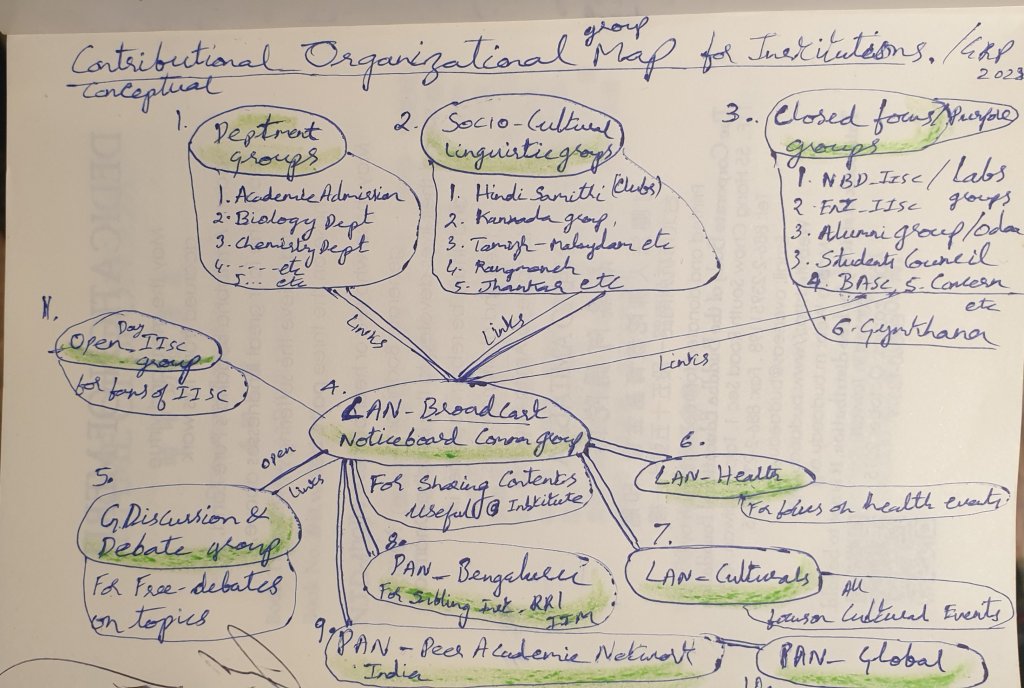 group
Contributional Organizational Map for Institutions. /GRP
Conceptual
2023
1.
Deptment
groups
1. Academic Admission
2. Biology Dept
3. Chemistry Dept
4. ---- etc
5... etc
2.
Socio-Cultural
Linguistic groups
1. Hindi Samithi (Clubs)
2. Kannada group,
3. etc
4. Rangmanch
5. Jhankar etc
3..
Closed focus/Purpose
groups
1. NBD_IISc / Labs
groups
2. ENT_IISc
3. Alumni group/
3. Students Council
4. BASC 5. Concern
etc
6. Gymkhana
Links
Links
Links
N.
Day
Open_IISc
group
for fans of IISC
4.
LAN-Broadcast
Noticeboard Common group
For Sharing Contents
Useful @ Institute
open
Links
5.
G.Discussion &
Debate group
For Free-debates
on topics
6.
LAN-Health
For focus on health events
7.
LAN-Culturals
All
focus on Cultural Events
8.
PAN_Bengaluru
For Sibling Inst. RRI
IIM
9.
PAN-Peer Academic Network
India
PAN_Global
10.